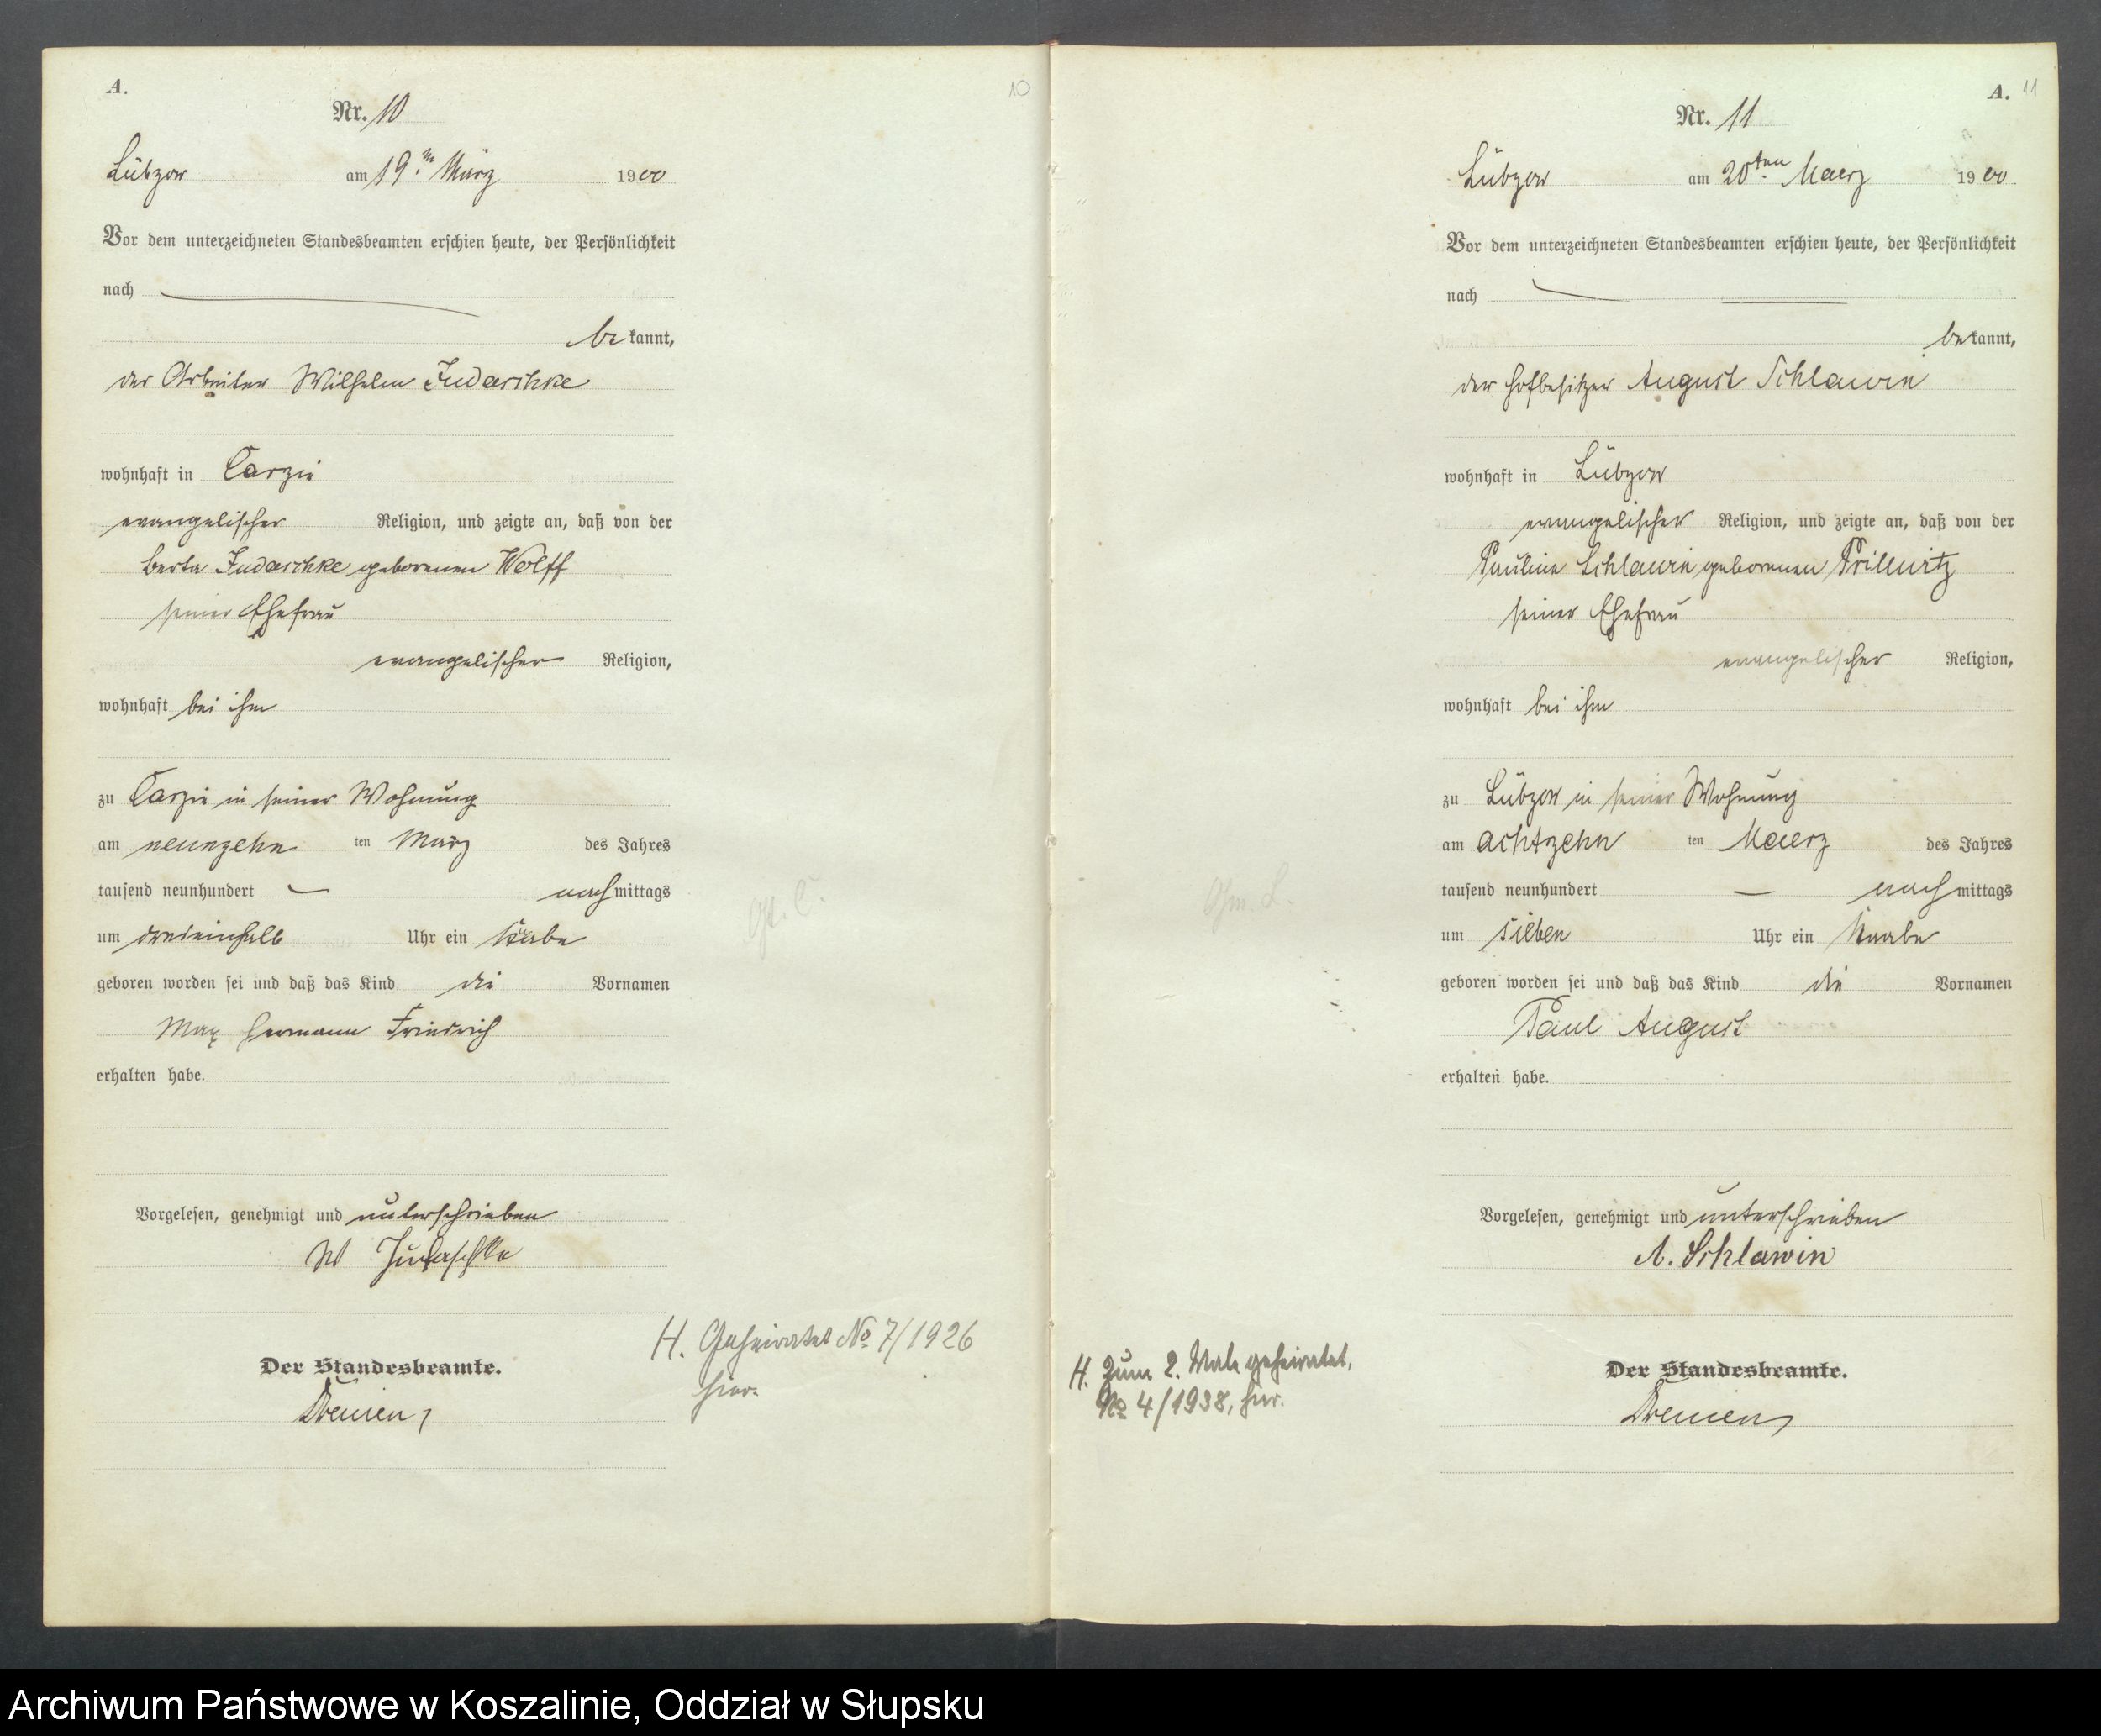 A.
10
Nr. 10
Lübzow am 19.ten März 1900
Vor dem unterzeichneten Standesbeamten erschien heute, der Persönlichkeit
nach
bekannt,
der Arbeiter Wilhelm Judaschke
wohnhaft in Carzin
evangelischer Religion, und zeigte an, daß von der
Berta Judaschke geborenen Wolff
seiner Ehefrau
evangelischer Religion,
wohnhaft bei ihm
zu Carzin in seiner Wohnung
am neunzehn ten März des Jahres
tausend neunhundert nachmittags
um dreieinhalb Uhr ein Knabe
geboren worden sei und daß das Kind die Vornamen
Max Hermann Friedrich
erhalten habe.
Vorgelesen, genehmigt und unterschrieben
W Judaschke
Der Standesbeamte.
H. Geheiratet No 7/1926
hier.
A. 11
Nr. 11
Lübzow am 20ten Maerz 1900
Vor dem unterzeichneten Standesbeamten erschien heute, der Persönlichkeit
nach
bekannt,
der Hofbesitzer August Schlawin
wohnhaft in Lübzow
evangelischer Religion, und zeigte an, daß von der
Pauline Schlawin geborenen Prillwitz
seiner Ehefrau
evangelischer Religion,
wohnhaft bei ihm
zu Lübzow in seiner Wohnung
am achtzehn ten Maerz des Jahres
tausend neunhundert nachmittags
um sieben Uhr ein Knabe
geboren worden sei und daß das Kind die Vornamen
Paul August
erhalten habe.
Vorgelesen, genehmigt und unterschrieben
A. Schlawin
Der Standesbeamte.
H. Zum 2. Male geheiratet,
No 4/1938, hier.
Archiwum Państwowe w Koszalinie, Oddział w Słupsku